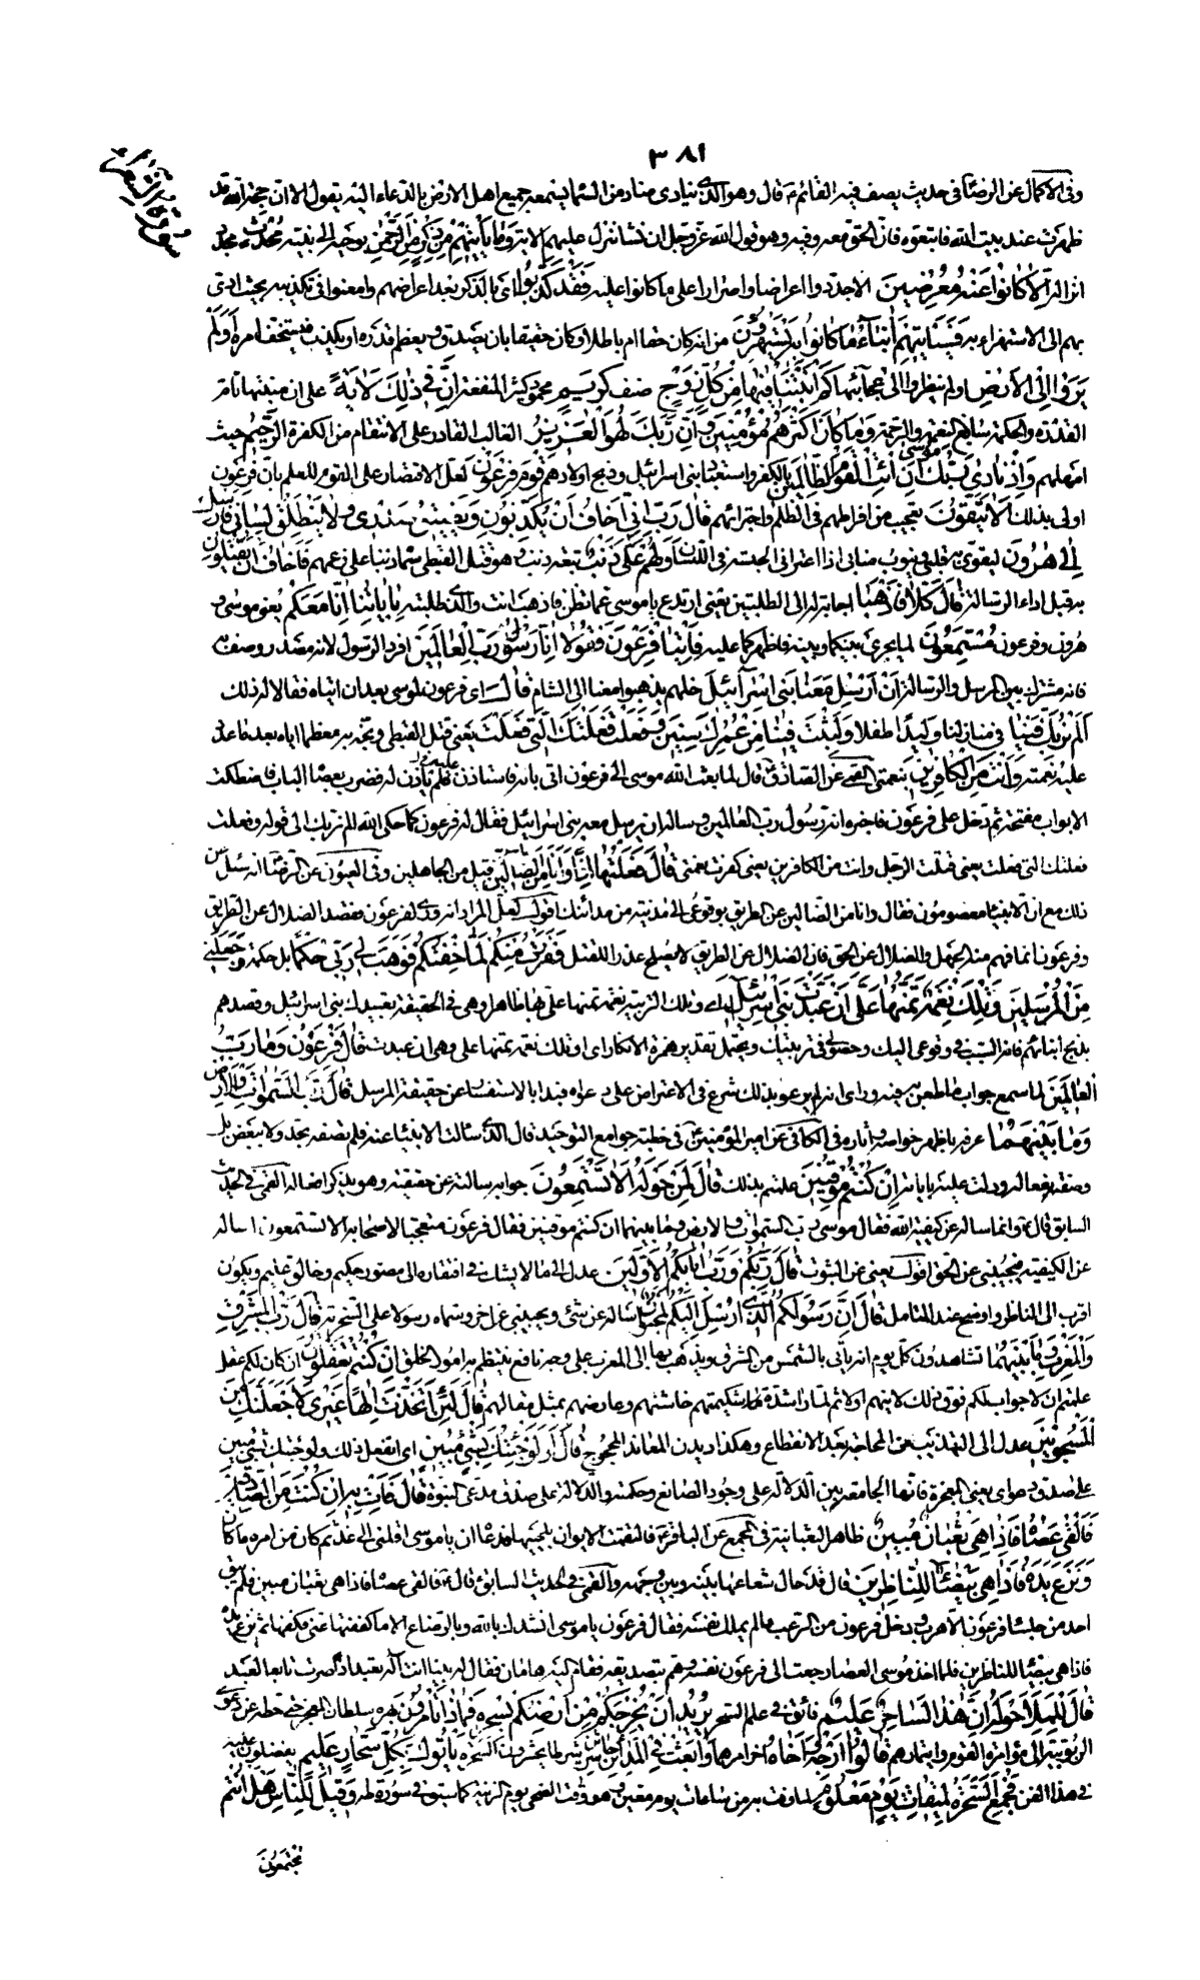 ٣٨١
سورة الشعراء
وفى الاكمال عن الرضا فى حديث يصف فيه القائم ع قال وهو الذى ينادى مناد من السماء يسمعه جميع اهل الارض بالدعاء اليه يقول الا ان حجة الله قد
ظهرت عند بيت الله فاتبعوه فان الحق معه وفيه وهو قول الله عز وجل ان نشأ ننزل عليهم الاية وَما يَأْتيهِمْ مِنْ ذِكْرٍ مِنَ الرَّحْمنِ يوحيه الى نبيه مُحْدَثٍ مجدد
انزاله اِلّا كانُوا عَنْهُ مُعْرِضينَ الا جددوا اعراضا واصرارا على ما كانوا عليه فَقَدْ كَذَّبُوا اى بالذكر بعد اعراضهم وامعنوا فى تكذيبه بحيث ادى
بهم الى الاستهزاء به فَسَيَأْتيهِمْ اَنْباءُ ما كانُوا بِه يَسْتَهْزِؤُنَ من انه كان حقا ام باطلا وكان حقيقا بان يصدق ويعظم قدره او يكذب فيستخف امره اَوَلَمْ
يَرَوْا اِلَى الْاَرْضِ اولم ينظروا الى عجائبها كَمْ اَنْبَتْنا فيها مِنْ كُلِّ زَوْجٍ صنف كَريمٍ محمود كثير المنفعة اِنَّ فى ذلِكَ لَايَةً على ان منبتها تام
القدرة والحكمة سابغ النعمة والرحمة وَما كانَ اَكْثَرُهُمْ مُؤْمِنينَ وَاِنَّ رَبَّكَ لَهُوَ الْعَزيزُ الغالب القادر على الانتقام من الكفرة الرَّحيمُ حيث
امهلهم وَاِذْ نادى رَبُّكَ مُوسى اَنِ ائْتِ الْقَوْمَ الظّالِمينَ بالكفر واستعباد بنى اسرائيل وذبح اولادهم قَوْمَ فِرْعَوْنَ لعل الاقتصار على القوم للعلم بان فرعون
اولى بذلك اَلا يَتَّقُونَ تعجب من افراطهم فى الظلم واجترائهم قالَ رَبِّ اِنّى اَخافُ اَنْ يُكَذِّبُونِ وَيَضيقُ صَدْرى وَلا يَنْطَلِقُ لِسانى فَاَرْسِلْ
اِلى هرُونَ ليقوى به قلبى وينوب منابى اذا اعترانى الحبسة فى اللسان وَلَهُمْ عَلَىَّ ذَنْبٌ تبعة ذنب وهو قتل القبطى سماه ذنبا على زعمهم فَاَخافُ اَنْ يَقْتُلُونِ
به قبل اداء الرسالة قالَ كَلّا فَاذْهَبا اجابة له الى الطلبتين يعنى ارتدع يا موسى عما تظن فاذهب انت والذى طلبته بِاياتِنا اِنّا مَعَكُمْ يعنى موسى و
هرون وفرعون مُسْتَمِعُونَ لما يجرى بينكما وبينه فاظهركما عليه فَاْتِيا فِرْعَوْنَ فَقُولا اِنّا رَسُولُ رَبِّ الْعالَمينَ افرد الرسول لانه مصدر وصف به
فانه مشترك بين المرسل والرسالة اَنْ اَرْسِلْ مَعَنا بَنى اِسْرائيلَ خلهم يذهبوا معنا الى الشام قالَ اى فرعون لموسى بعد ان اتياه فقالا له ذلك
اَلَمْ نُرَبِّكَ فينا فى منازلنا وَليدًا طفلا وَلَبِثْتَ فينا مِنْ عُمُرِكَ سِنينَ وَفَعَلْتَ فَعْلَتَكَ الَّتى فَعَلْتَ يعنى قتل القبطى وبخه به معظما اياه بعد ما عدد
عليه نعمته وَاَنْتَ مِنَ الْكافِرينَ بنعمتى القمى عن الصادق ع قال لما بعث الله موسى الى فرعون اتى بابه فاستاذن عليه فلم يأذن له فضرب بعصاه الباب فاصطكت
الابواب مفتحة ثم دخل على فرعون فاخبره انه رسول رب العالمين وساله ان يرسل معه بنى اسرائيل فقال له فرعون كما حكى الله الم نربك الى قوله وفعلت
فعلتك التى فعلت يعنى قتلت الرجل وانت من الكافرين يعنى كفرت نعمتى قالَ فَعَلْتُها اِذًا وَاَنَا مِنَ الضّالّينَ قيل من الجاهلين وفى العيون عن الرضا انه سئل عن
ذلك مع ان الانبياء معصومون فقال وانا من الضالين عن الطريق بوقوعى الى مدينة من مدائنك اقول لعل المراد انه ورى لفرعون فقصد الضلال عن الطريق
وفرعون انما فهم منه الجهل والضلال عن الحق فان الضلال عن الطريق لا يصلح عذرا للقتل فَفَرَرْتُ مِنْكُمْ لَمّا خِفْتُكُمْ فَوَهَبَ لى رَبّى حُكْمًا بل حكمة وَجَعَلَنى
مِنَ الْمُرْسَلينَ وَتِلْكَ نِعْمَةٌ تَمُنُّها عَلَىَّ اَنْ عَبَّدْتَ بَنى اِسْرائيلَ اى وتلك التربية نعمة تمنها على بها ظاهرا وهى فى الحقيقة تعبيدك بنى اسرائيل وقصدهم
بذبح ابنائهم فانه السبب فى وقوعى اليك وحصولى فى تربيتك ويحتمل تقدير همزة الانكار اى او تلك نعمة تمنها على وهى ان عبدت قالَ فِرْعَوْنُ وَما رَبُّ
الْعالَمينَ لما سمع جواب ما طعن به فيه وراى انه لم يرعو بذلك شرع فى الاعتراض على دعواه فبدا بالاستفسار عن حقيقة المرسل قالَ رَبُّ السَّمواتِ وَالْاَرْضِ
وَما بَيْنَهُما عرفه باظهر خواصه واثاره وفى الكافى عن امير المؤمنين فى خطبة جوامع التوحيد قال الذى سالت الانبياء عنه فلم تصفه بحد ولا ببعض بل
وصفته بفعاله ودلت عليه باياته اِنْ كُنْتُمْ مُوقِنينَ علمتم بذلك قالَ لِمَنْ حَوْلَهُ اَلا تَسْتَمِعُونَ جوابه سالته عن حقيقته وهو يذكر افعاله القمى فى الحديث
السابق قال ع وانما ساله عن كيفية الله فقال موسى رب السموات والارض وما بينهما ان كنتم موقنين فقال فرعون متعجبا لاصحابه الا تستمعون اساله
عن الكيفية فيجيبنى عن الحق اقول يعنى عن الثبوت قالَ رَبُّكُمْ وَرَبُّ ابائِكُمُ الْاَوَّلينَ عدل الى ما لا يشك فى افتقاره الى مصور حكيم وخالق عليم ويكون
اقرب الى الناظر واوضح عند المتامل قالَ اِنَّ رَسُولَكُمُ الَّذى اُرْسِلَ اِلَيْكُمْ لَمَجْنُونٌ اساله عن شئ ويجيبنى عن اخر وسماه رسولا على السخرية قالَ رَبُّ الْمَشْرِقِ
وَالْمَغْرِبِ وَما بَيْنَهُما تشاهدون كل يوم انه يأتى بالشمس من المشرق ويذهب بها الى المغرب على وجه نافع ينتظم به امور الخلق اِنْ كُنْتُمْ تَعْقِلُونَ ان كان لكم عقل
علمتم ان لا جواب لكم فوق ذلك لاينهم اولا ثم لما راى شدة شكيمتهم خاشنهم وعارضهم بمثل مقالهم قالَ لَئِنِ اتَّخَذْتَ اِلهًا غَيْرى لَاَجْعَلَنَّكَ مِنَ
الْمَسْجُونينَ عدل الى التهديد عن المحاجة بعد الانقطاع وهكذا ديدن المعاند المحجوج قالَ اَوَلَوْ جِئْتُكَ بِشَىْءٍ مُبينٍ اى اتفعل ذلك ولو جئتك بشئ مبين
على صدق دعواى يعنى المعجزة فانها الجامعة بين الدلالة على وجود الصانع وحكمته والدلالة على صدق مدعى النبوة قالَ فَاْتِ بِه اِنْ كُنْتَ مِنَ الصّادِقينَ
فَاَلْقى عَصاهُ فَاِذا هِىَ ثُعْبانٌ مُبينٌ ظاهر الثعبانية فى المجمع عن الباقر ع فالتقمت الايوان بلحييها فدعاه ان يا موسى اقلنى الى غد ثم كان من امره ما كان
وَنَزَعَ يَدَهُ فَاِذا هِىَ بَيْضاءُ لِلنّاظِرينَ قال قد حال شعاعها بينه وبين وجهه والقمى فى الحديث السابق قال ع فالقى عصاه فاذا هى ثعبان مبين فلم يبق
احد من جلساء فرعون الا هرب ودخل فرعون من الرعب ما لم يملك نفسه فقال فرعون يا موسى انشدك بالله وبالرضاع الا ما كففتها عنى فكفها ثم نزع يده
فاذا هى بيضاء للناظرين فلما اخذ موسى العصا رجعت الى فرعون نفسه وهم بتصديقه فقام اليه هامان فقال له بينا انت اله تعبد اذ صرت تابعا لعبد
قالَ لِلْمَلَاِ حَوْلَهُ اِنَّ هذا لَساحِرٌ عَليمٌ فائق فى علم السحر يُريدُ اَنْ يُخْرِجَكُمْ مِنْ اَرْضِكُمْ بِسِحْرِه فَماذا تَأْمُرُونَ بهره سلطان المعجز حتى حطه عن دعوى
الربوبية الى مؤامرة القوم وايتمارهم قالُوا اَرْجِهْ وَاَخاهُ اخر امرهما وَابْعَثْ فِى الْمَدائِنِ حاشِرينَ شرطا يحشرون السحرة يَأْتُوكَ بِكُلِّ سَحّارٍ عَليمٍ يفضلون عليه
فى هذا الفن فَجُمِعَ السَّحَرَةُ لِميقاتِ يَوْمٍ مَعْلُومٍ لما وقت به من ساعات يوم معين وهو وقت الضحى يوم الزينة كما سبق فى سورة طه وَقيلَ لِلنّاسِ هَلْ اَنْتُمْ
مُجْتَمِعُونَ